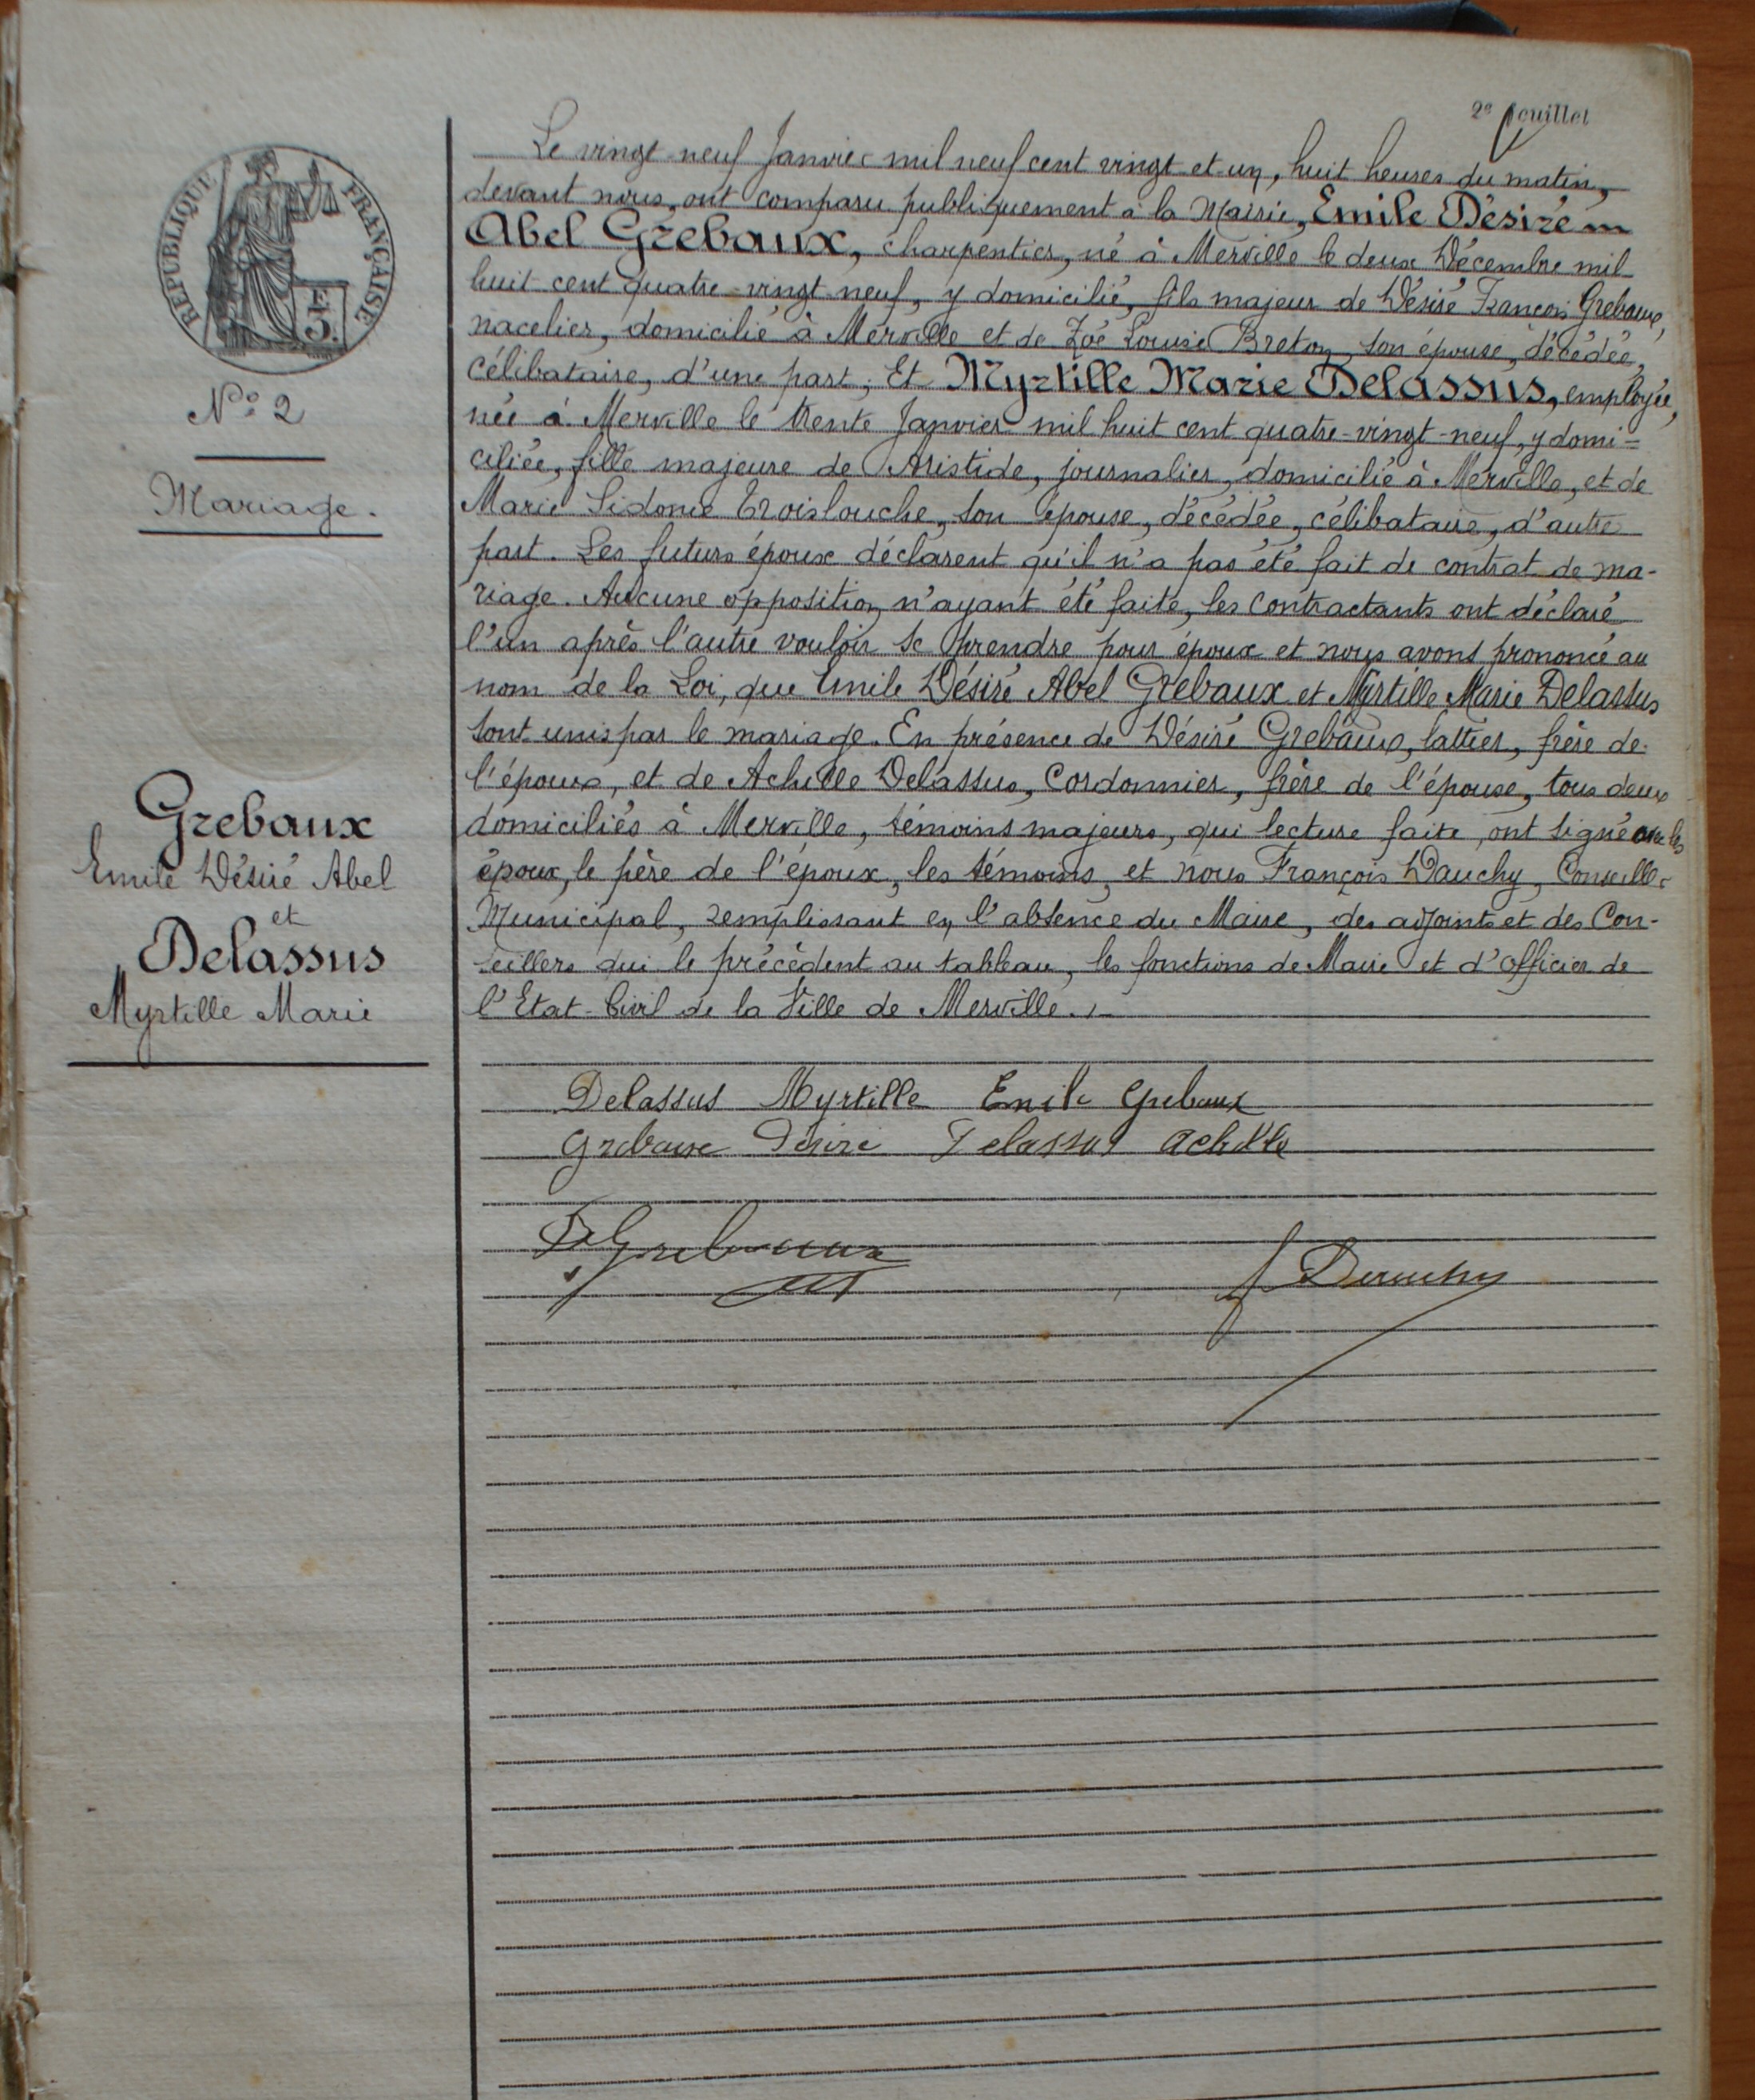 2e feuillet
RÉPUBLIQUE FRANÇAISE
No 2
Mariage.
Grebaux
Emile Désiré Abel
et
Delassus
Myrtille Marie
Le vingt-neuf Janvier mil neuf cent vingt-et-un, huit heures du matin,
devant nous, ont comparu publiquement à la Mairie, Emile Désiré
Abel Grebaux, charpentier, né à Merville le deux Décembre mil
huit cent quatre-vingt-neuf, y domicilié, fils majeur de Désiré François Grebaux,
nacelier, domicilié à Merville et de Zoé Louise Breton, son épouse, décédée,
célibataire, d'une part; Et Myrtille Marie Delassus, employée,
née à Merville le trente Janvier mil huit cent quatre-vingt-neuf, y domi=
ciliée, fille majeure de Aristide, journalier, domicilié à Merville, et de
Marie Sidonie Troislouche, son épouse, décédée, célibataire, d'autre
part. Les futurs époux déclarent qu'il n'a pas été fait de contrat de ma-
riage. Aucune opposition n'ayant été faite, les contractants ont déclaré
l'un après l'autre vouloir se prendre pour époux et nous avons prononcé au
nom de la Loi, que Emile Désiré Abel Grebaux et Myrtille Marie Delassus
sont unis par le mariage. En présence de Désiré Grebaux, lattier, frère de
l'époux, et de Achille Delassus, Cordonnier, frère de l'épouse, tous deux
domiciliés à Merville, témoins majeurs, qui lecture faite, ont signé avec les
époux, le père de l'époux, les témoins, et nous François Dauchy, Conseiller
Municipal, remplissant en l'absence du Maire, des adjoints et des Con-
seillers qui le précèdent au tableau, les fonctions de Maire et d'officier de
l'Etat-Civil de la Ville de Merville.
Delassus Myrtille Emile Grebaux
Grebaux Désiré Delassus Achille
D. Grebaux
f Dauchy